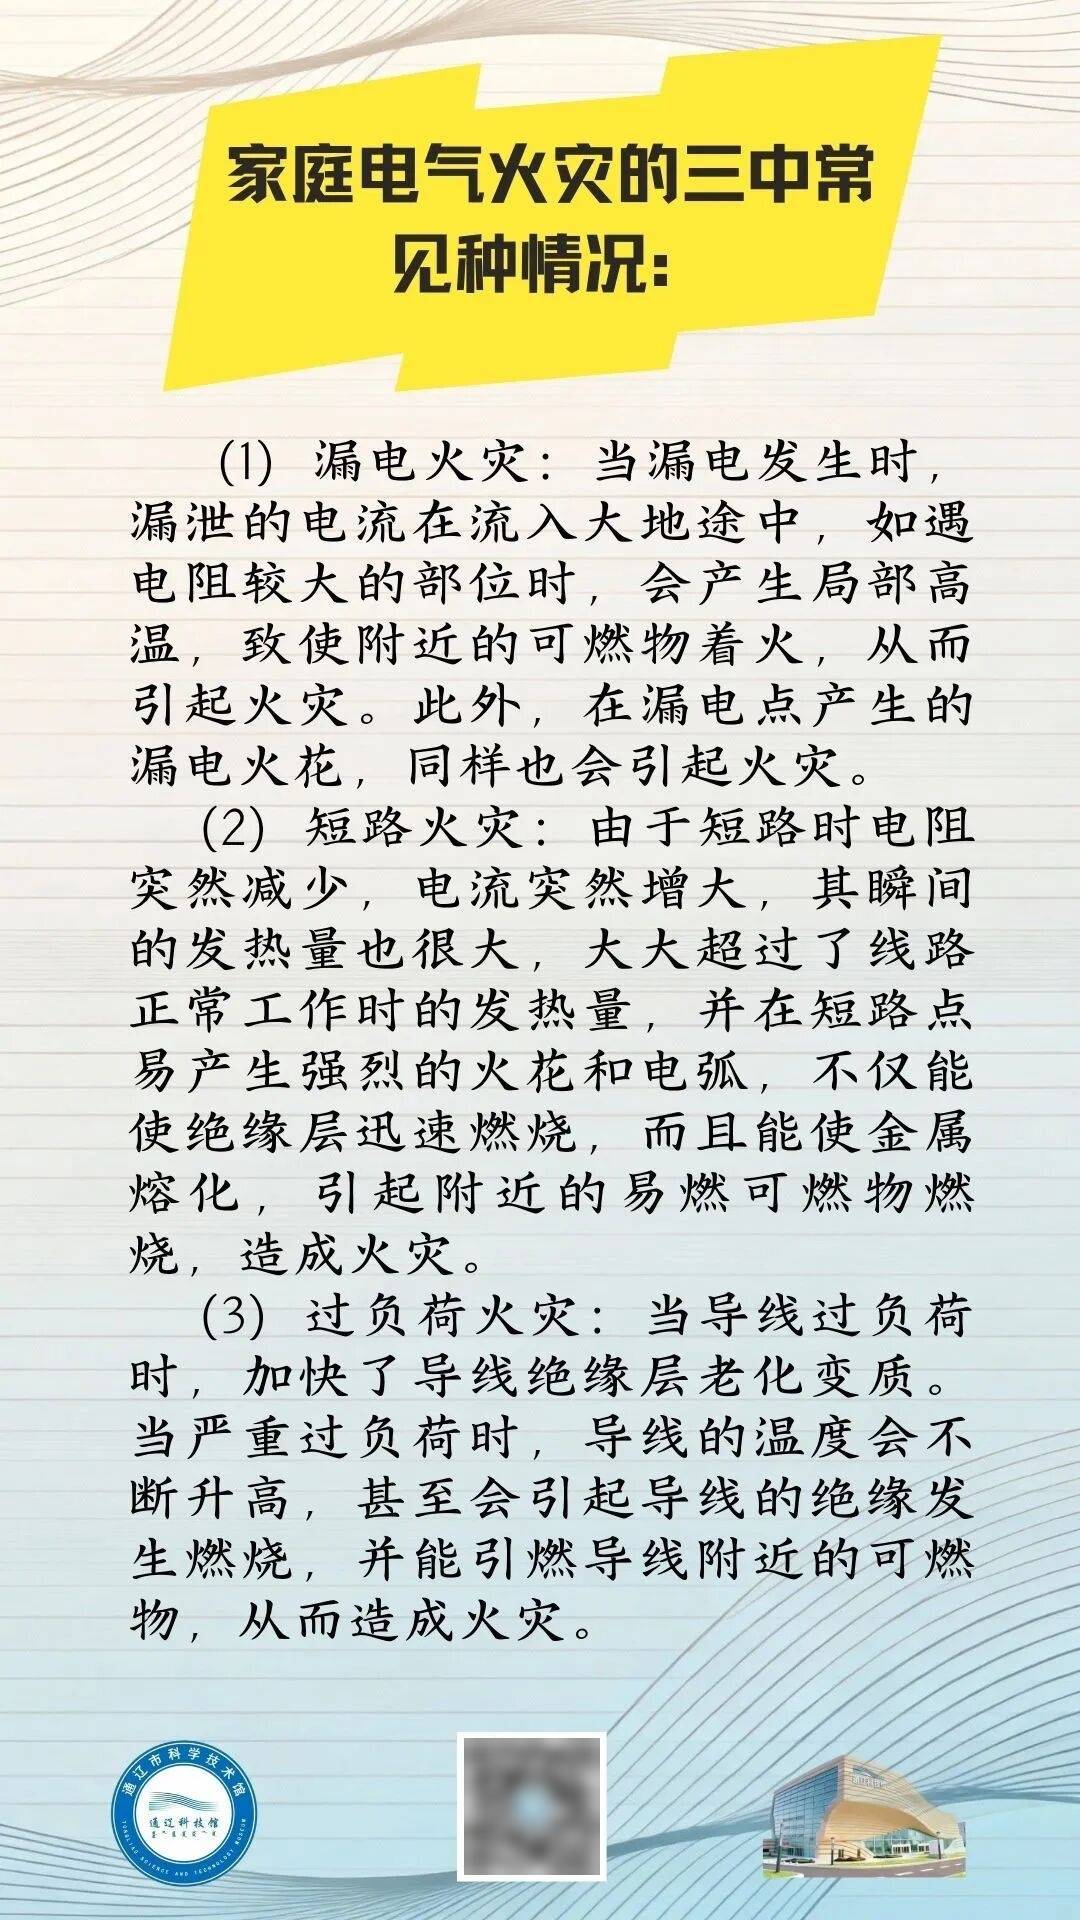 家庭电气火灾的三中常
见种情况：
(1) 漏电火灾：当漏电发生时，
漏泄的电流在流入大地途中，如遇
电阻较大的部位时，会产生局部高
温，致使附近的可燃物着火，从而
引起火灾。此外，在漏电点产生的
漏电火花，同样也会引起火灾。
(2) 短路火灾：由于短路时电阻
突然减少，电流突然增大，其瞬间
的发热量也很大，大大超过了线路
正常工作时的发热量，并在短路点
易产生强烈的火花和电弧，不仅能
使绝缘层迅速燃烧，而且能使金属
熔化，引起附近的易燃可燃物燃
烧，造成火灾。
(3) 过负荷火灾：当导线过负荷
时，加快了导线绝缘层老化变质。
当严重过负荷时，导线的温度会不
断升高，甚至会引起导线的绝缘发
生燃烧，并能引燃导线附近的可燃
物，从而造成火灾。
通辽市科学技术馆
通辽科技馆
TONGLIAO SCIENCE AND TECHNOLOGY MUSEUM